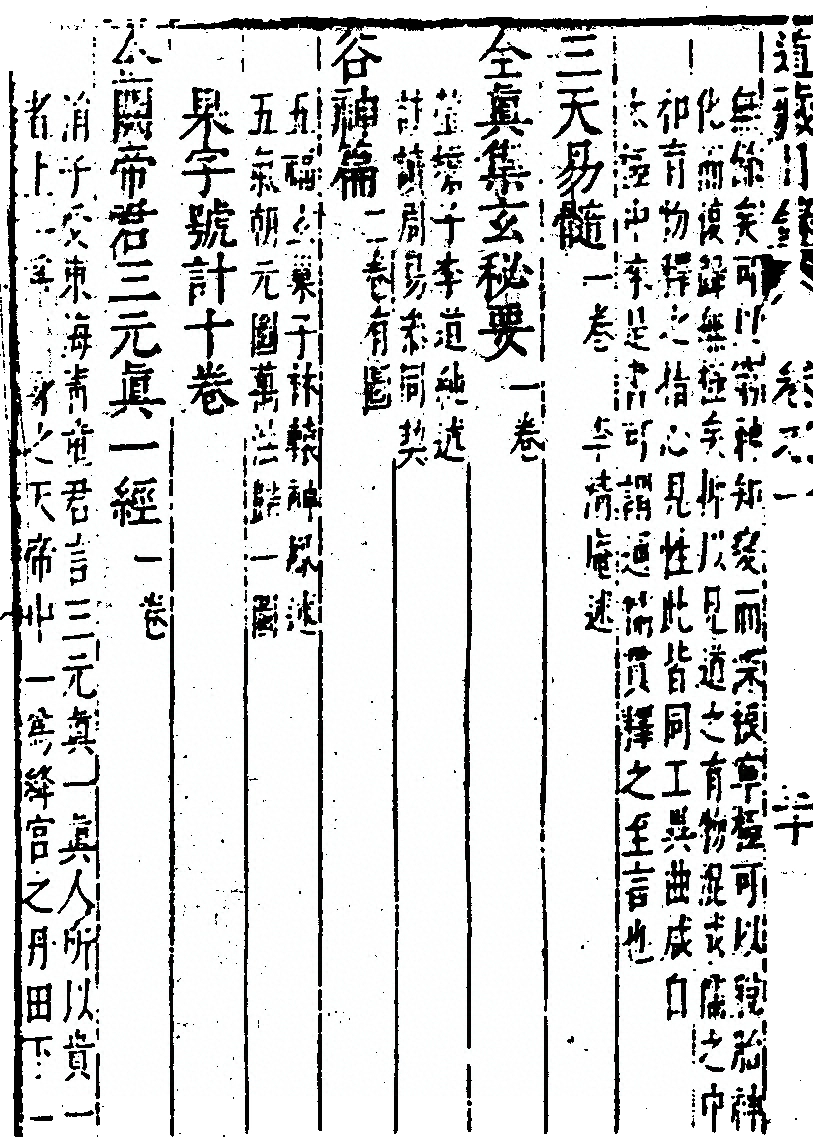 道藏目錄 卷之一 二十
無餘矣可以窮神知變而深根寧極可以脫胎神
化而復歸無極矣所以見道之有物混成儒之中
和育物釋之指心見性此皆同工異曲咸自
太極中來是書可謂通儒貫釋之至言也
三天易髓一卷 李清庵述
全真集玄秘要一卷
瑩蟾子李道純述
註讀周易參同契
谷神篇二卷有圖
五福玄巢子林轅神鳳述
五氣朝元圖萬法歸一圖
果字號計十卷
金闕帝君三元眞一經一卷
涓子受東海青童君言三元眞一眞人所以貴一
者上一爲 之天帝中一爲絳宮之丹田下一